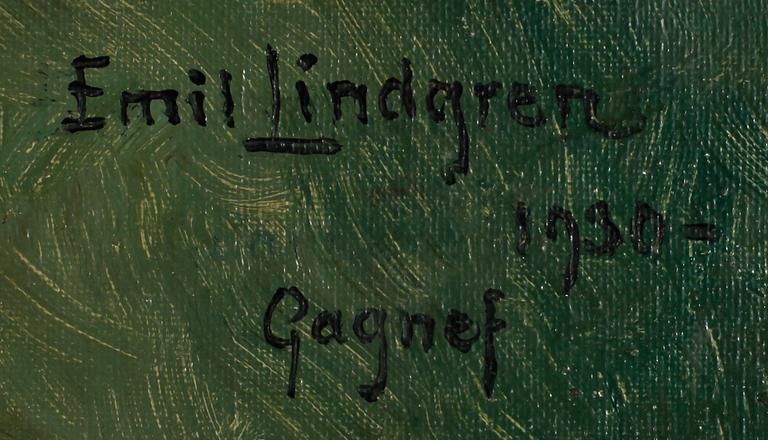 Emil Lindgren
1930=
Gagnef